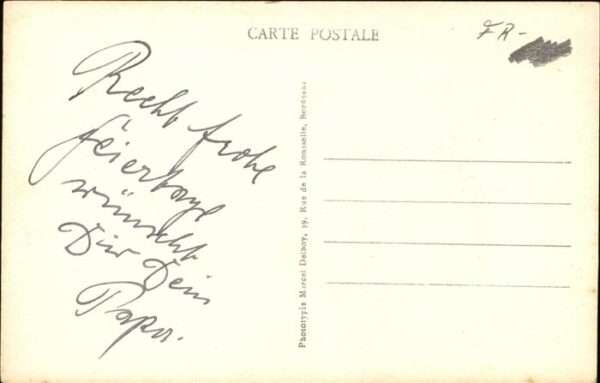 CARTE POSTALE
FR-
Recht frohe
Feiertage
wünscht
Dir Dein
Papa.
Phototypie Marcel Delboy, 39, Rue de la Rousselle, Bordeaux